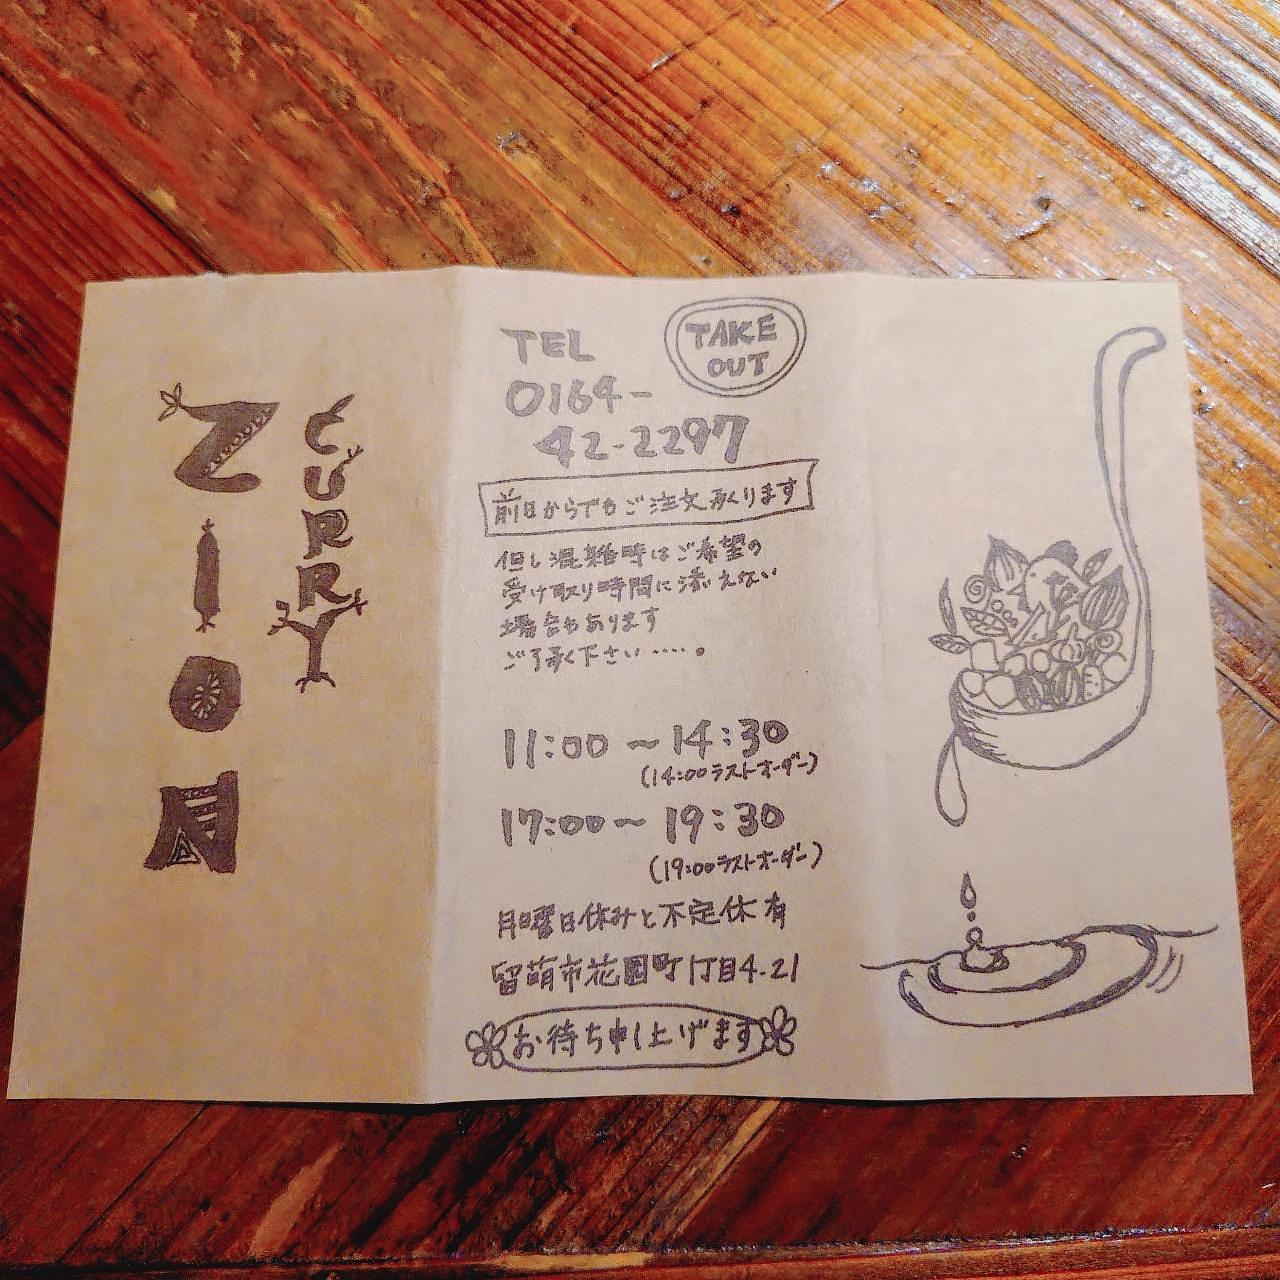 CURRY
ZION
TAKE
OUT
TEL
0164-
42-2297
前日からでもご注文承ります
但し混雑時はご希望の
受け取り時間に添えない
場合もあります
ご了承下さい……。
11:00 〜 14:30
(14:00ラストオーダー)
17:00〜 19:30
(19:00ラストオーダー)
月曜日休みと不定休有
留萌市花園町1丁目4-21
お待ち申し上げます